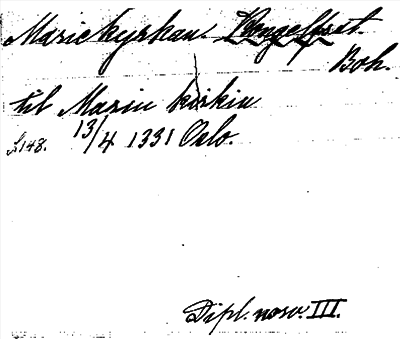 Mariekyrkan. Konghelle st.
Boh.
til Mariu kirkiu
s. 148. 13/4 1331 Oslo.
Dipl. norv. III.